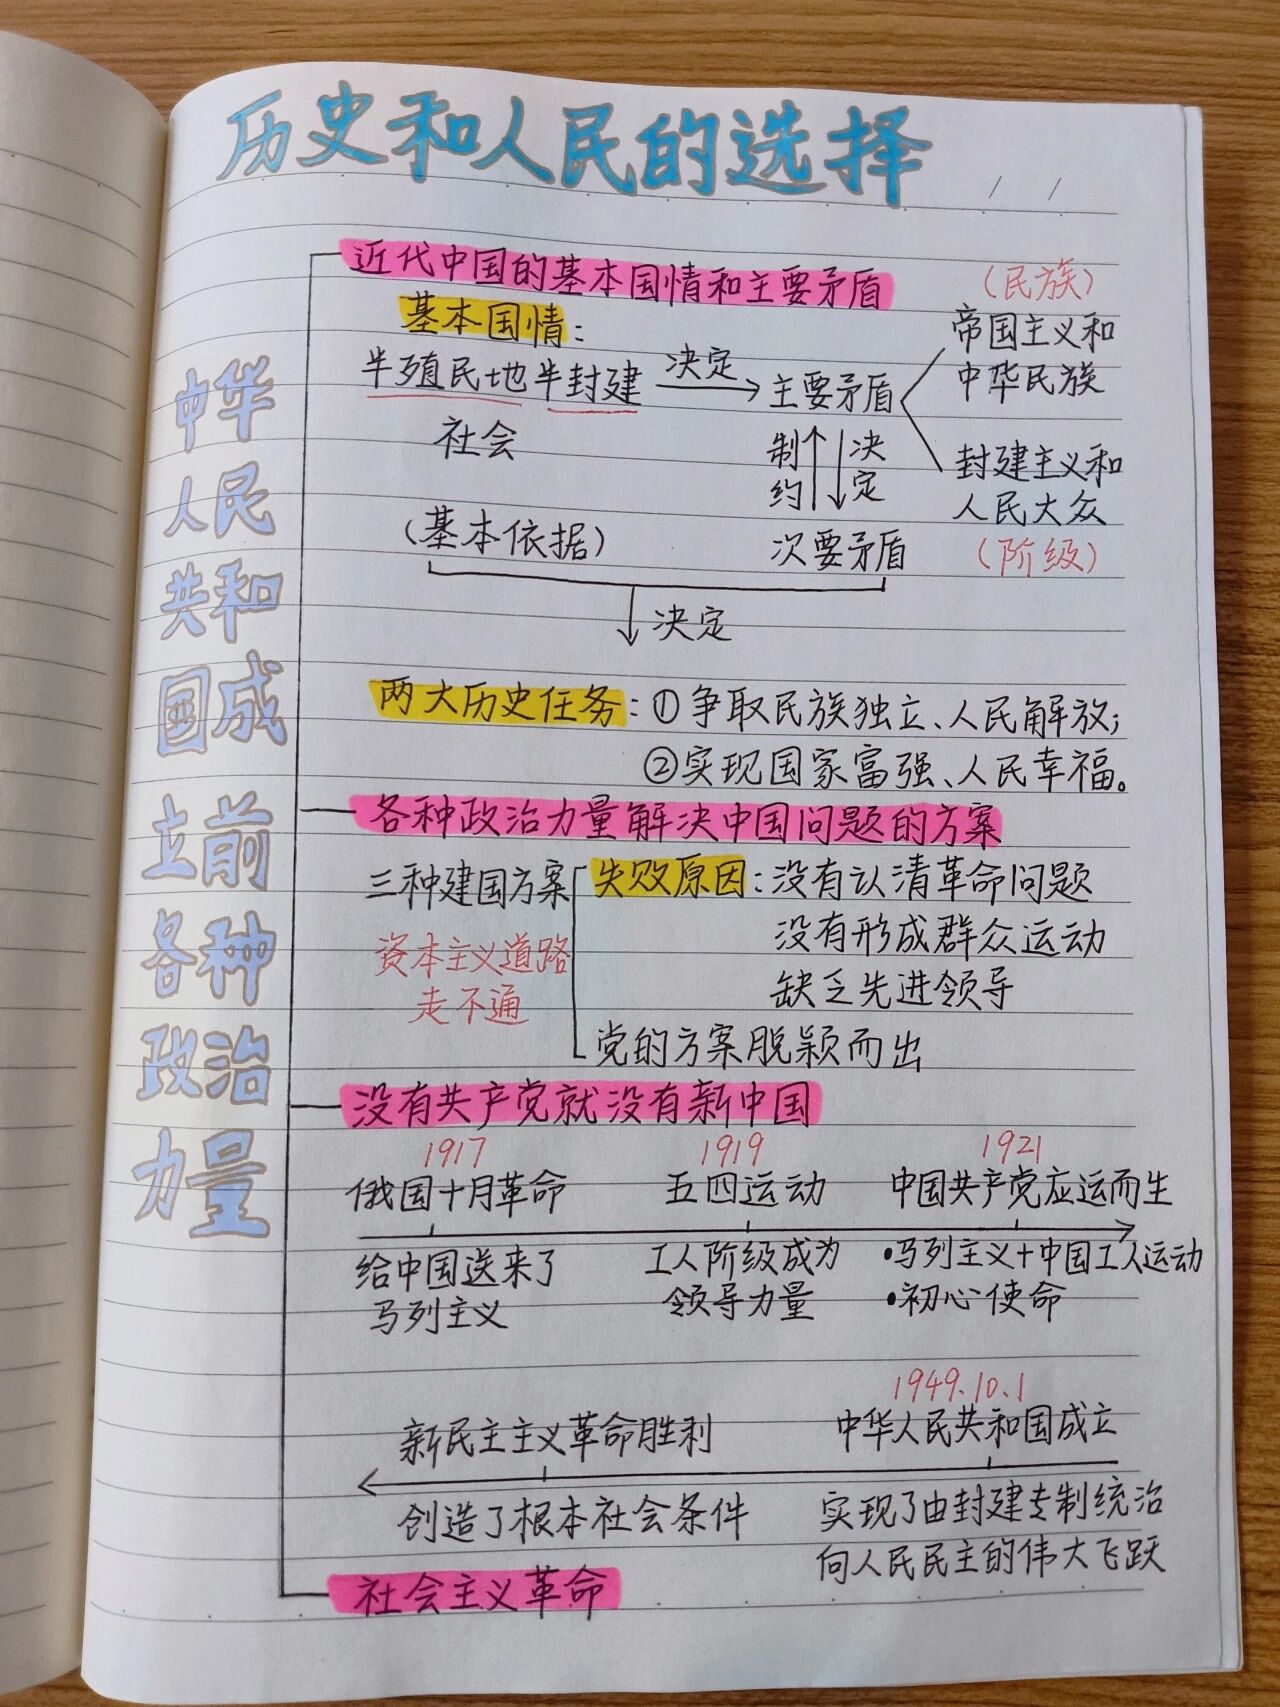 历史和人民的选择
/ /
中华
人民
共和
国成
立前
各种
政治
力量
近代中国的基本国情和主要矛盾
基本国情:
半殖民地半封建
社会
(基本依据)
决定
主要矛盾
制约
决定
次要矛盾
(民族)
帝国主义和
中华民族
封建主义和
人民大众
(阶级)
决定
两大历史任务:①争取民族独立、人民解放;
②实现国家富强、人民幸福。
各种政治力量解决中国问题的方案
三种建国方案
资本主义道路
走不通
失败原因:没有认清革命问题
没有形成群众运动
缺乏先进领导
党的方案脱颖而出
没有共产党就没有新中国
1917
俄国十月革命
给中国送来了
马列主义
1919
五四运动
工人阶级成为
领导力量
1921
中国共产党应运而生
•马列主义+中国工人运动
•初心使命
1949.10.1
中华人民共和国成立
实现了由封建专制统治
向人民民主的伟大飞跃
新民主主义革命胜利
创造了根本社会条件
社会主义革命